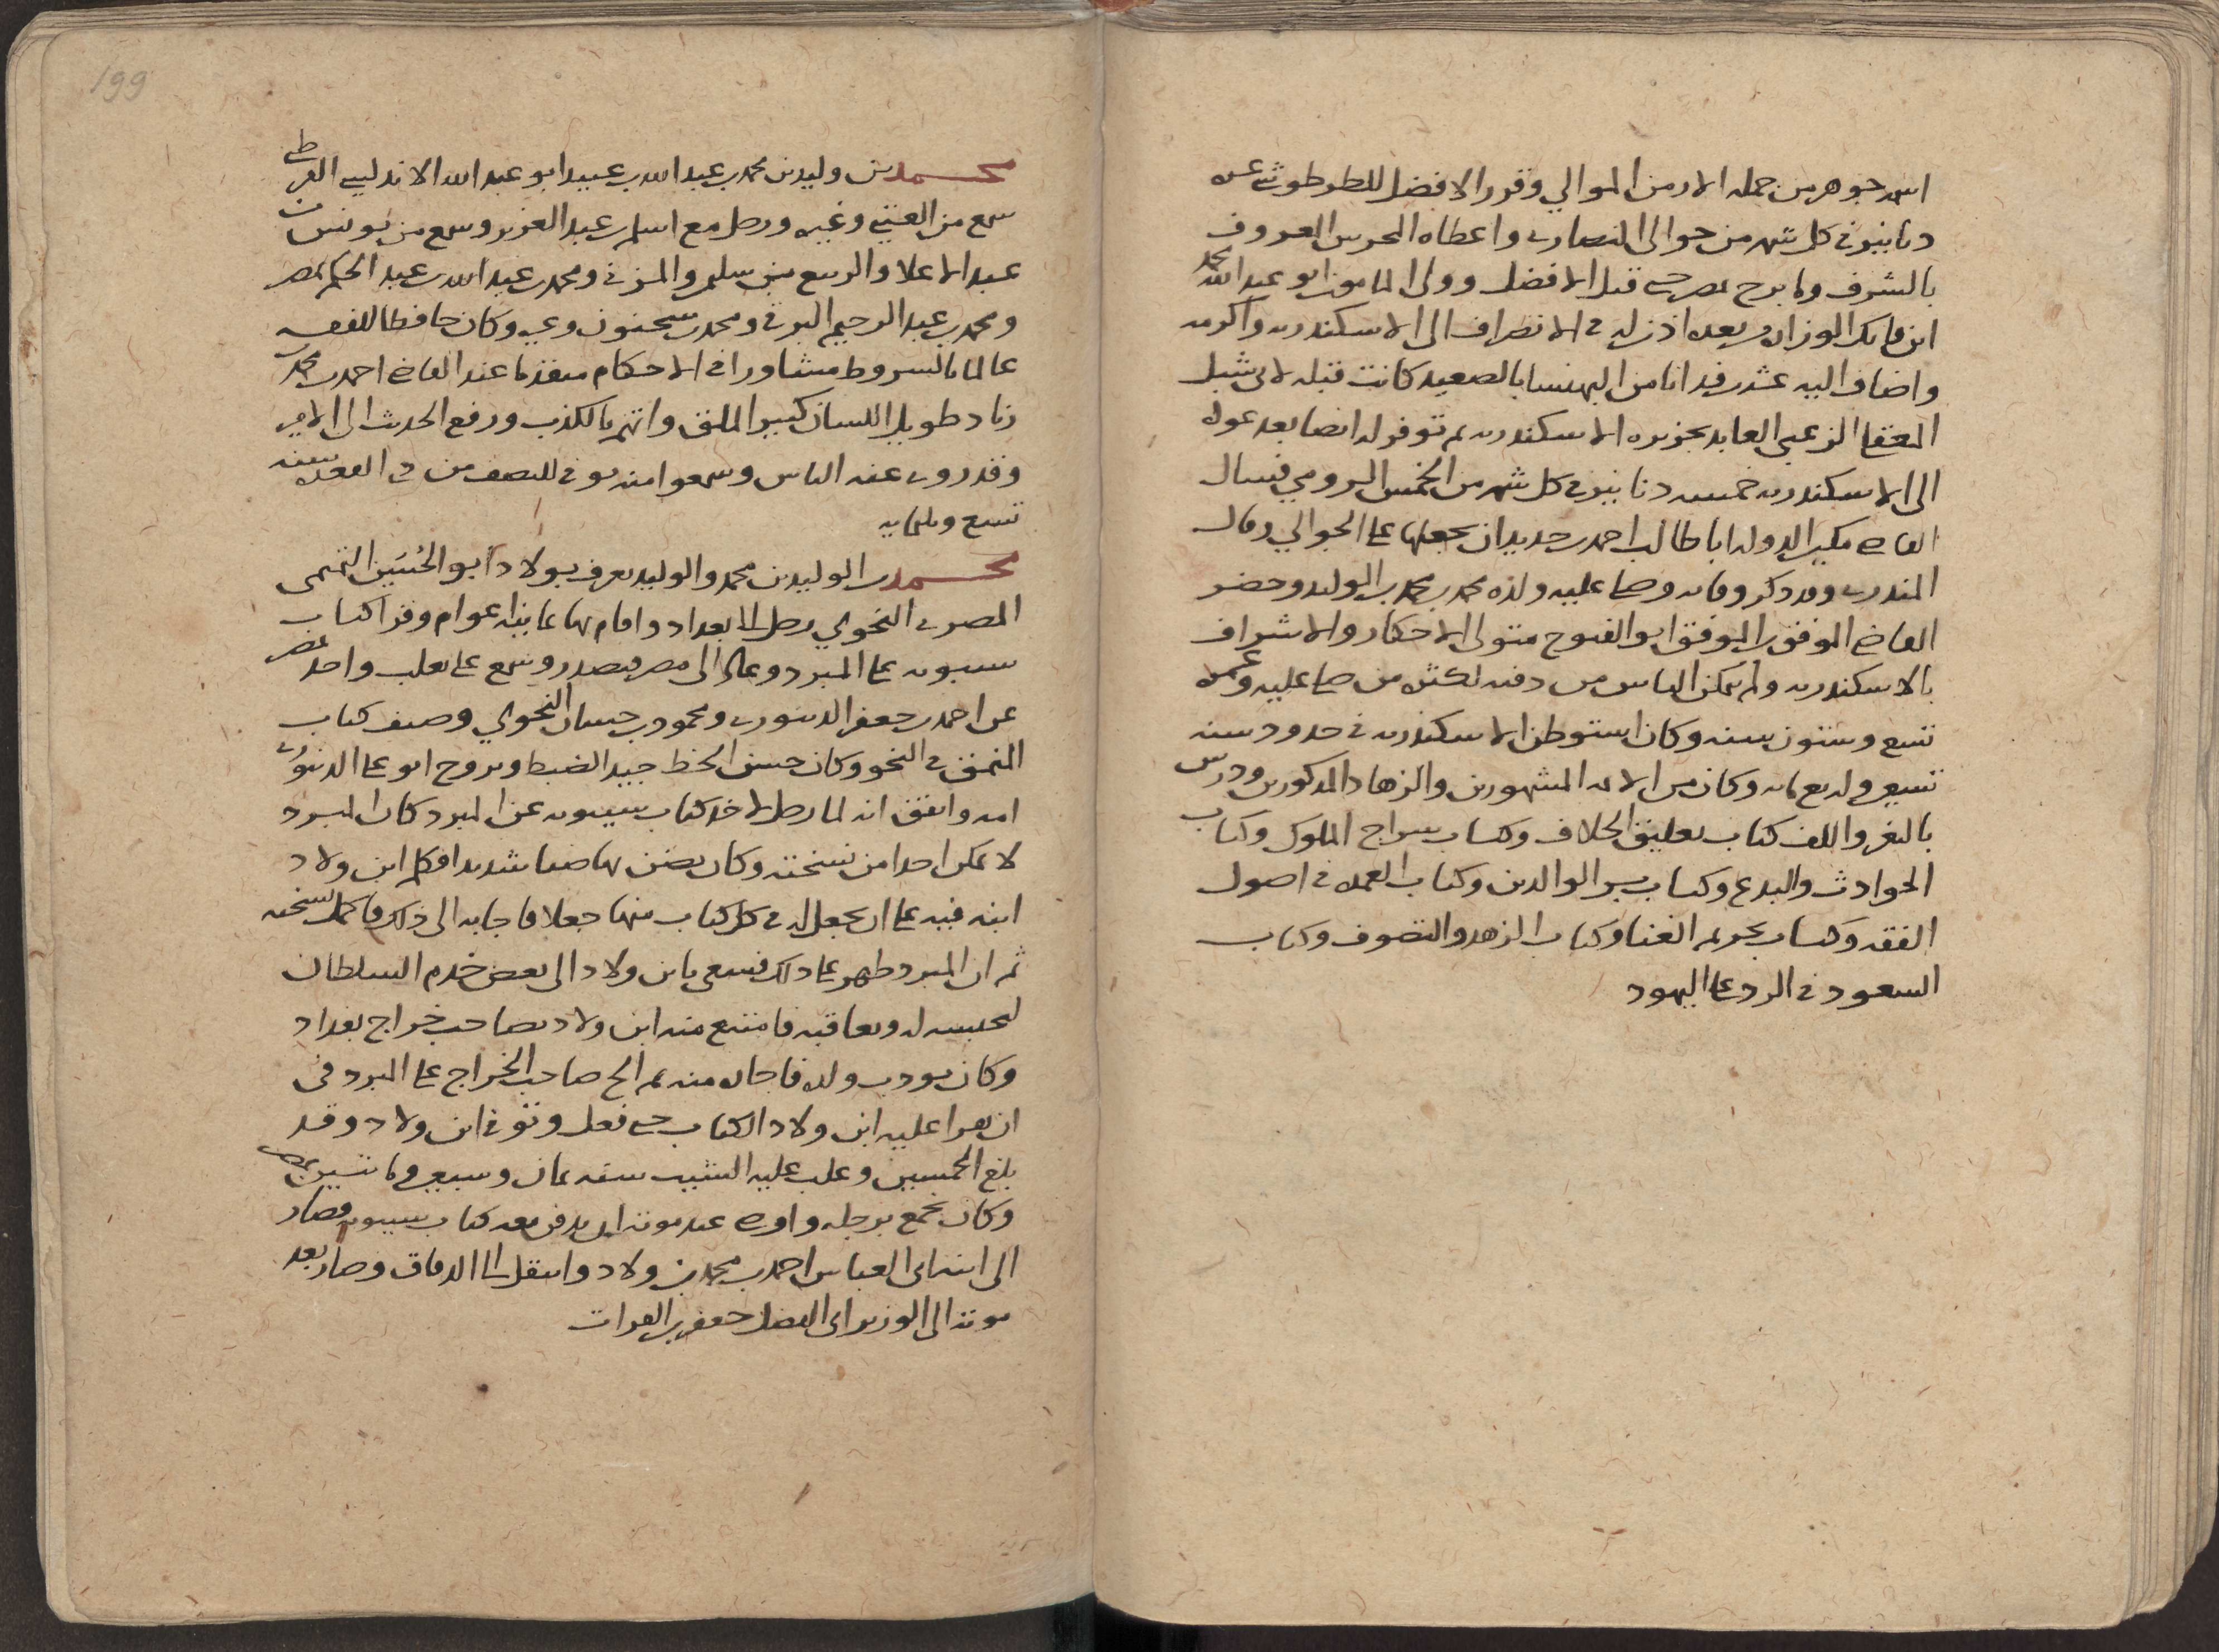 اسمه جوهر من جمله الارمن الموالي وقرر الافضل للطرطوشي عشره
دنانير في كل شهر من جوالى النصارى واعطاه المحرس المعروف
بالشرف ولم يبرح بمصر حتى قتل الافضل وولى المامون ابو عبد الله محمد
ابن فاتك الوزاره بعده اذن له في الانصراف الى الاسكندريه واكرمه
واضاف اليه عشره فدانا من البهنسا بالصعيد كانت قبله لابي شبل
المعقا الزعبي العابد بجزيره الاسكندريه ثم توفر له ايضا بعد عوده
الى الاسكندريه خمسه دنانير في كل شهر من الخمس الرومي فسال
القاضي مكين الدوله ابا طالب احمد بن حديد ان يجعلها على الجوالي وقال
المنذري وقد ذكر وفاته وصلى عليه ولده محمد بن محمد بن الوليد وحضر
القاضي الموفق بن الموفق ابو الفتوح متولى الاحكام والاشراف
بالاسكندريه ولم يتمكن الناس من دفنه لكثره من صلى عليه وعمره
تسع وستون سنه وكان استوطن الاسكندريه في حدود سنه
تسعين واربع مايه وكان من الايمه المشهورين والزهاد المذكورين ودرس
بالثغر والف كتاب تعليق الخلاف وكتاب سراج الملوك وكتاب
الحوادث والبدع وكتاب بر الوالدين وكتاب العمده في اصول
الفقه وكتاب تحريم الغنا وكتاب الزهد والتصوف وكتاب
السعود في الرد على اليهود
199
محمد بن وليد بن محمد بن عبد الله بن عبيد ابو عبد الله الاندلسي القرطبي
سمع من العتبي وغيره ورحل مع اسلم بن عبد العزيز وسمع من يونس بن
عبد الاعلا والربيع بن سليمن والمزني ومحمد بن عبد الله بن عبد الحكم بمصر
ومحمد بن عبد الرحيم البرقي ومحمد بن سحنون وغيره وكان حافظا للفقه
عالما بالشروط مشاورا في الاحكام متقدما عند القاضي احمد بن محمد بن
زياد طويل اللسان كبير الملق واتهم بالكذب ورفع الحديث الى الامير
وقد روى عنه الناس وسمعوا منه توفي للنصف من ذي القعده سنه
تسع وثلثمايه
محمد بن الوليد بن محمد والوليد يعرف بولاد ابو الحسين التميمي
المصري النحوي رحل الى بغداد واقام بها ثمانيه اعوام وقرا كتاب
سيبويه على المبرد وعاد الى مصر فتصدر وسمع على ثعلب واخذ بمصر
عن احمد بن جعفر الدينوري ومحمود بن حسان النحوي وصنف كتاب
المنمق في النحو وكان حسن الخط جيد الضبط وتزوج ابو على الدينوري
امه واتفق انه لما رحل لاخذ كتاب سيبويه عن المبرد كان المبرد
لا يمكن احدا من نسخته وكان يضن بها ضنا شديدا فكلم ابن ولاد
ابنه فيه على ان يجعل له في كل كتاب منها جعلا فاجابه الى ذلك فاكمل نسخته
ثم ان المبرد ظهر على ذلك فسعى بابن ولاد الى بعض خدم السلطان
ليحبسه له ويعاقبه فامتنع منه ابن ولاد بصاحب خراج بغداد
وكان يودب ولده فاجاره منه ثم الح صاحب الخراج على المبرد في
ان يقرا عليه ابن ولاد الكتاب حتى فعل وتوفي ابن ولاد وقد
بلغ الخمسين وغلب عليه الشيب سنه ثمان وتسعين ومايتين بمصر
وكان يجمع برجله واوصى عند موته ان يدفن معه كتاب سيبويه فصار
الى ابنه ابي العباس احمد بن محمد بن ولاد وانتقل الى الدقاق وصار بعد
موته الى الوزير ابي الفضل جعفر بن الفرات